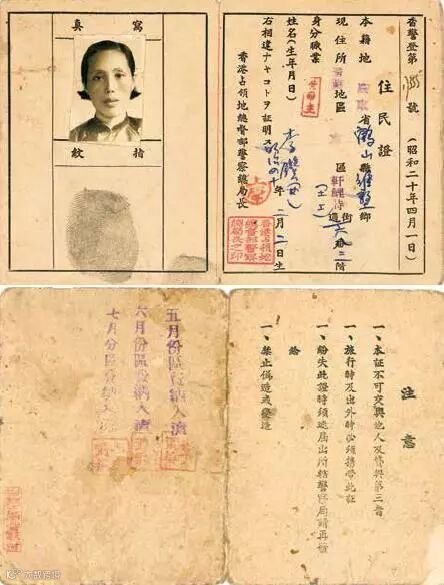 香警登第 號（昭和二十年四月一日）
住民證
本籍地 廣東省鶴山縣 鄉
現住所 地區 區 街 階
身分職業
姓名（生年月日） 李 年二月二日生
右相違ナキコトヲ証明ス
香港占領地總督部警察總局長
香港占領地總督部警察總局長之印
寫真
指紋
注意
一、本証不可交與他人及借與第三者
一、旅行時及出外時必須携帶此証
一、紛失此證時須速屆出所轄警察局請再發
給
一、禁止偽造或變造
五月份區 納入濟
六月份區 納入濟
七月分區 納入